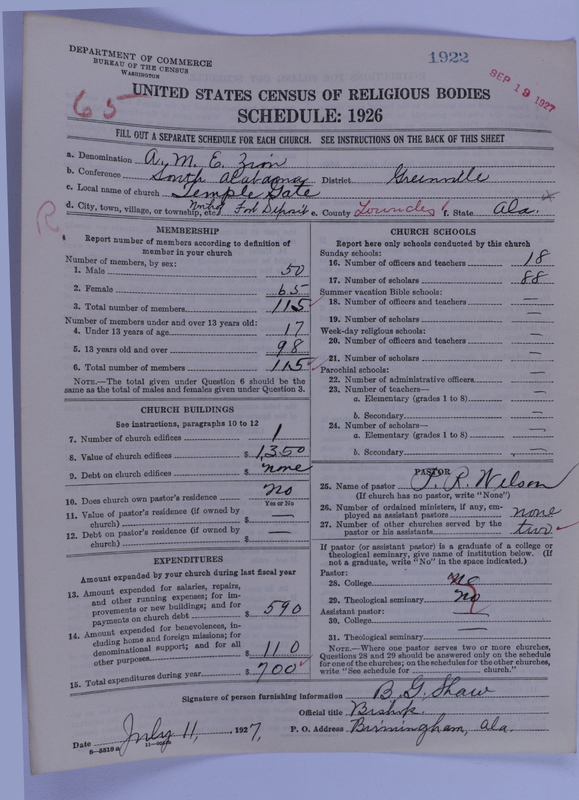 DEPARTMENT OF COMMERCE
BUREAU OF THE CENSUS
WASHINGTON
1922
SEP 19 1927
65
UNITED STATES CENSUS OF RELIGIOUS BODIES
SCHEDULE: 1926
FILL OUT A SEPARATE SCHEDULE FOR EACH CHURCH. SEE INSTRUCTIONS ON THE BACK OF THIS SHEET
a. Denomination A. M. E. Zion
b. Conference South Alabama District Greenville
c. Local name of church Temple Gate
d. City, town, village, or township, etc. Fort Deposit e. County Lowndes f. State Ala.
R
MEMBERSHIP
Report number of members according to definition of member in your church
Number of members, by sex:
1. Male 50
2. Female 65
3. Total number of members 115
Number of members under and over 13 years old:
4. Under 13 years of age 17
5. 13 years old and over 98
6. Total number of members 115
NOTE.—The total given under Question 6 should be the same as the total of males and females given under Question 3.
CHURCH BUILDINGS
See instructions, paragraphs 10 to 12
7. Number of church edifices 1
8. Value of church edifices $ 1350
9. Debt on church edifices $ none
10. Does church own pastor's residence no
Yes or No
11. Value of pastor's residence (if owned by church) $ —
12. Debt on pastor's residence (if owned by church) $ —
EXPENDITURES
Amount expended by your church during last fiscal year
13. Amount expended for salaries, repairs, and other running expenses; for improvements or new buildings; and for payments on church debt $ 590
14. Amount expended for benevolences, including home and foreign missions; for denominational support; and for all other purposes $ 110
15. Total expenditures during year $ 700
CHURCH SCHOOLS
Report here only schools conducted by this church
Sunday schools:
16. Number of officers and teachers 18
17. Number of scholars 88
Summer vacation Bible schools:
18. Number of officers and teachers —
19. Number of scholars —
Week-day religious schools:
20. Number of officers and teachers —
21. Number of scholars —
Parochial schools:
22. Number of administrative officers —
23. Number of teachers—
a. Elementary (grades 1 to 8) —
b. Secondary —
24. Number of scholars—
a. Elementary (grades 1 to 8) —
b. Secondary —
PASTOR
25. Name of pastor R. Wilson
(If church has no pastor, write "None")
26. Number of ordained ministers, if any, employed as assistant pastors none
27. Number of other churches served by the pastor or his assistants two
If pastor (or assistant pastor) is a graduate of a college or theological seminary, give name of institution below. (If not a graduate, write "No" in the space indicated.)
Pastor:
28. College no
29. Theological seminary no
Assistant pastor:
30. College —
31. Theological seminary —
NOTE.—Where one pastor serves two or more churches, Questions 28 and 29 should be answered only on the schedule for one of the churches; on the schedules for the other churches, write "See schedule for church."
Signature of person furnishing information B. G. Shaw
Official title Bishop
Date July 11, 1927, P. O. Address Birmingham, Ala.